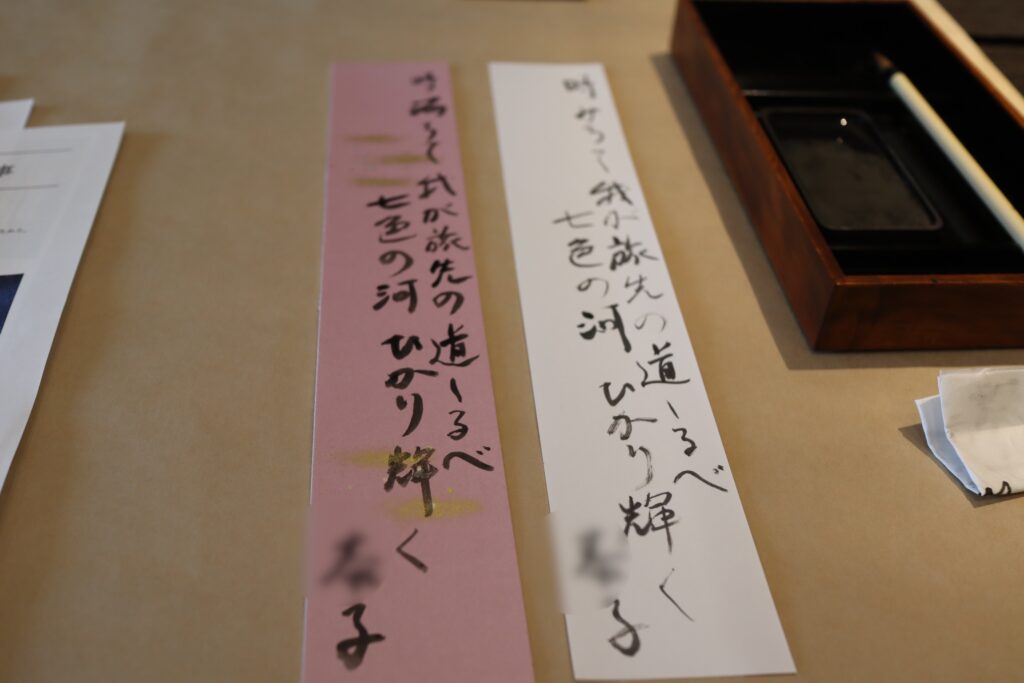 時みちて我が旅先の道しるべ
七色の河ひかり輝く
子
時満ちて我が旅先の道しるべ
七色の河ひかり輝く
子